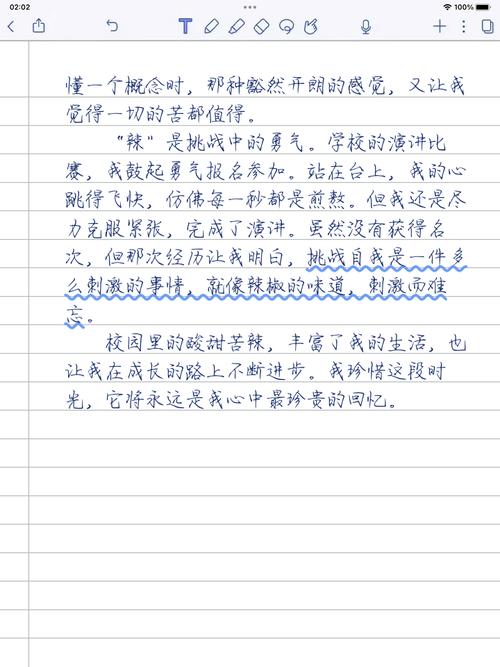 02:02
100%
懂一个概念时，那种豁然开朗的感觉，又让我
觉得一切的苦都值得。
“辣”是挑战中的勇气。学校的演讲比
赛，我鼓起勇气报名参加。站在台上，我的心
跳得飞快，仿佛每一秒都是煎熬。但我还是尽
力克服紧张，完成了演讲。虽然没有获得名
次，但那次经历让我明白，挑战自我是一件多
么刺激的事情，就像辣椒的味道，刺激而难
忘。
校园里的酸甜苦辣，丰富了我的生活，也
让我在成长的路上不断进步。我珍惜这段时
光，它将永远是我心中最珍贵的回忆。